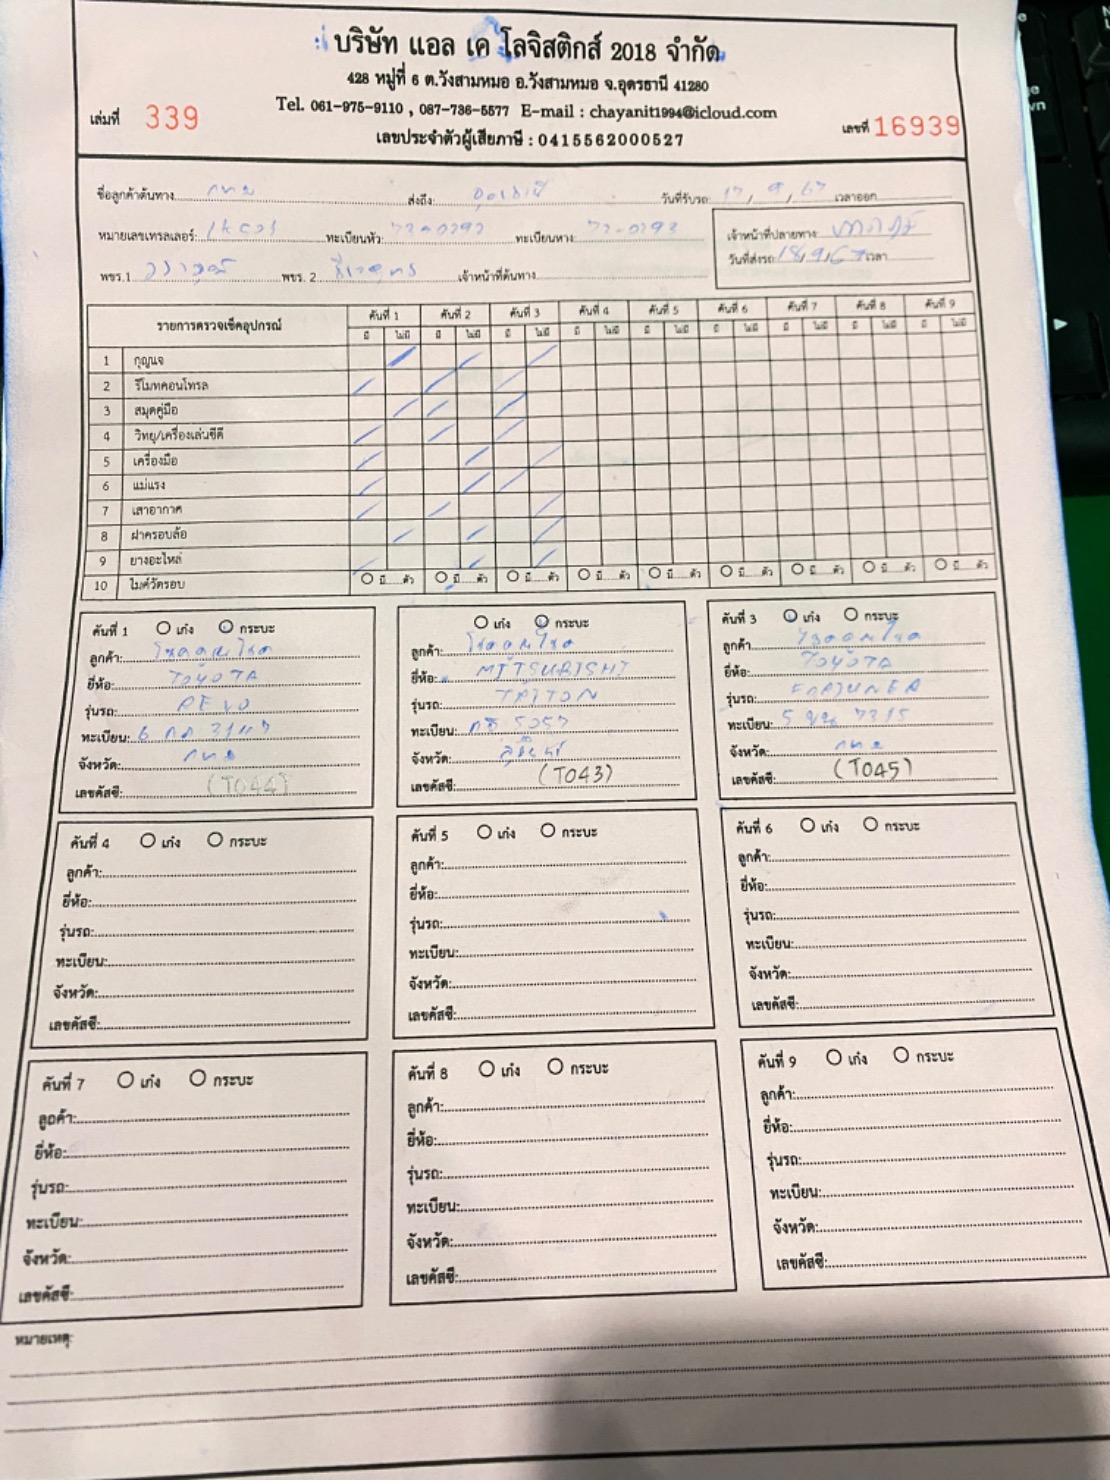 บริษัท แอล เค โลจิสติกส์ 2018 จำกัด
428 หมู่ที่ 6 ต.วังสามหมอ อ.วังสามหมอ จ.อุดรธานี 41280
Tel. 061-975-9110 , 087-736-5577 E-mail : chayanit1994@icloud.com
เล่มที่ 339 เลขที่ 16939
เลขประจำตัวผู้เสียภาษี : 0415562000527
ชื่อลูกค้าต้นทาง กทม ส่งถึง: อุดรธานี วันที่รับรถ: 17 / 9 / 67 เวลาออก
หมายเลขเทรลเลอร์: ทะเบียนหัว: ทะเบียนหาง:
เจ้าหน้าที่ปลายทาง
พขร.1 พขร. 2 เจ้าหน้าที่ต้นทาง
วันที่ส่งรถ 18/9/67 เวลา
รายการตรวจเช็คอุปกรณ์ คันที่ 1 คันที่ 2 คันที่ 3 คันที่ 4 คันที่ 5 คันที่ 6 คันที่ 7 คันที่ 8 คันที่ 9
มี ไม่มี มี ไม่มี มี ไม่มี มี ไม่มี มี ไม่มี มี ไม่มี มี ไม่มี มี ไม่มี มี ไม่มี
1 กุญแจ
2 รีโมทคอนโทรล
3 สมุดคู่มือ
4 วิทยุ/เครื่องเล่นซีดี
5 เครื่องมือ
6 แม่แรง
7 เสาอากาศ
8 ฝาครอบล้อ
9 ยางอะไหล่
10 ไมค์วัดรอบ มี.....ตัว มี.....ตัว มี.....ตัว มี.....ตัว มี.....ตัว มี.....ตัว มี.....ตัว มี.....ตัว มี.....ตัว
คันที่ 1 เก๋ง กระบะ
ลูกค้า:
ยี่ห้อ: TOYOTA
รุ่นรถ: REVO
ทะเบียน:
จังหวัด: กทม
เลขคัสซี: (T044)
เก๋ง กระบะ
ลูกค้า:
ยี่ห้อ: MITSUBISHI
รุ่นรถ: TRITON
ทะเบียน:
จังหวัด:
เลขคัสซี: (T043)
คันที่ 3 เก๋ง กระบะ
ลูกค้า
ยี่ห้อ: TOYOTA
รุ่นรถ: FORTUNER
ทะเบียน:
จังหวัด: กทม
เลขคัสซี: (T045)
คันที่ 4 เก๋ง กระบะ
ลูกค้า:
ยี่ห้อ:
รุ่นรถ:
ทะเบียน:
จังหวัด:
เลขคัสซี:
คันที่ 5 เก๋ง กระบะ
ลูกค้า:
ยี่ห้อ:
รุ่นรถ:
ทะเบียน:
จังหวัด:
เลขคัสซี:
คันที่ 6 เก๋ง กระบะ
ลูกค้า:
ยี่ห้อ:
รุ่นรถ:
ทะเบียน:
จังหวัด:
เลขคัสซี:
คันที่ 7 เก๋ง กระบะ
ลูกค้า:
ยี่ห้อ:
รุ่นรถ:
ทะเบียน:
จังหวัด:
เลขคัสซี:
คันที่ 8 เก๋ง กระบะ
ลูกค้า:
ยี่ห้อ:
รุ่นรถ:
ทะเบียน:
จังหวัด:
เลขคัสซี:
คันที่ 9 เก๋ง กระบะ
ลูกค้า:
ยี่ห้อ:
รุ่นรถ:
ทะเบียน:
จังหวัด:
เลขคัสซี:
หมายเหตุ: